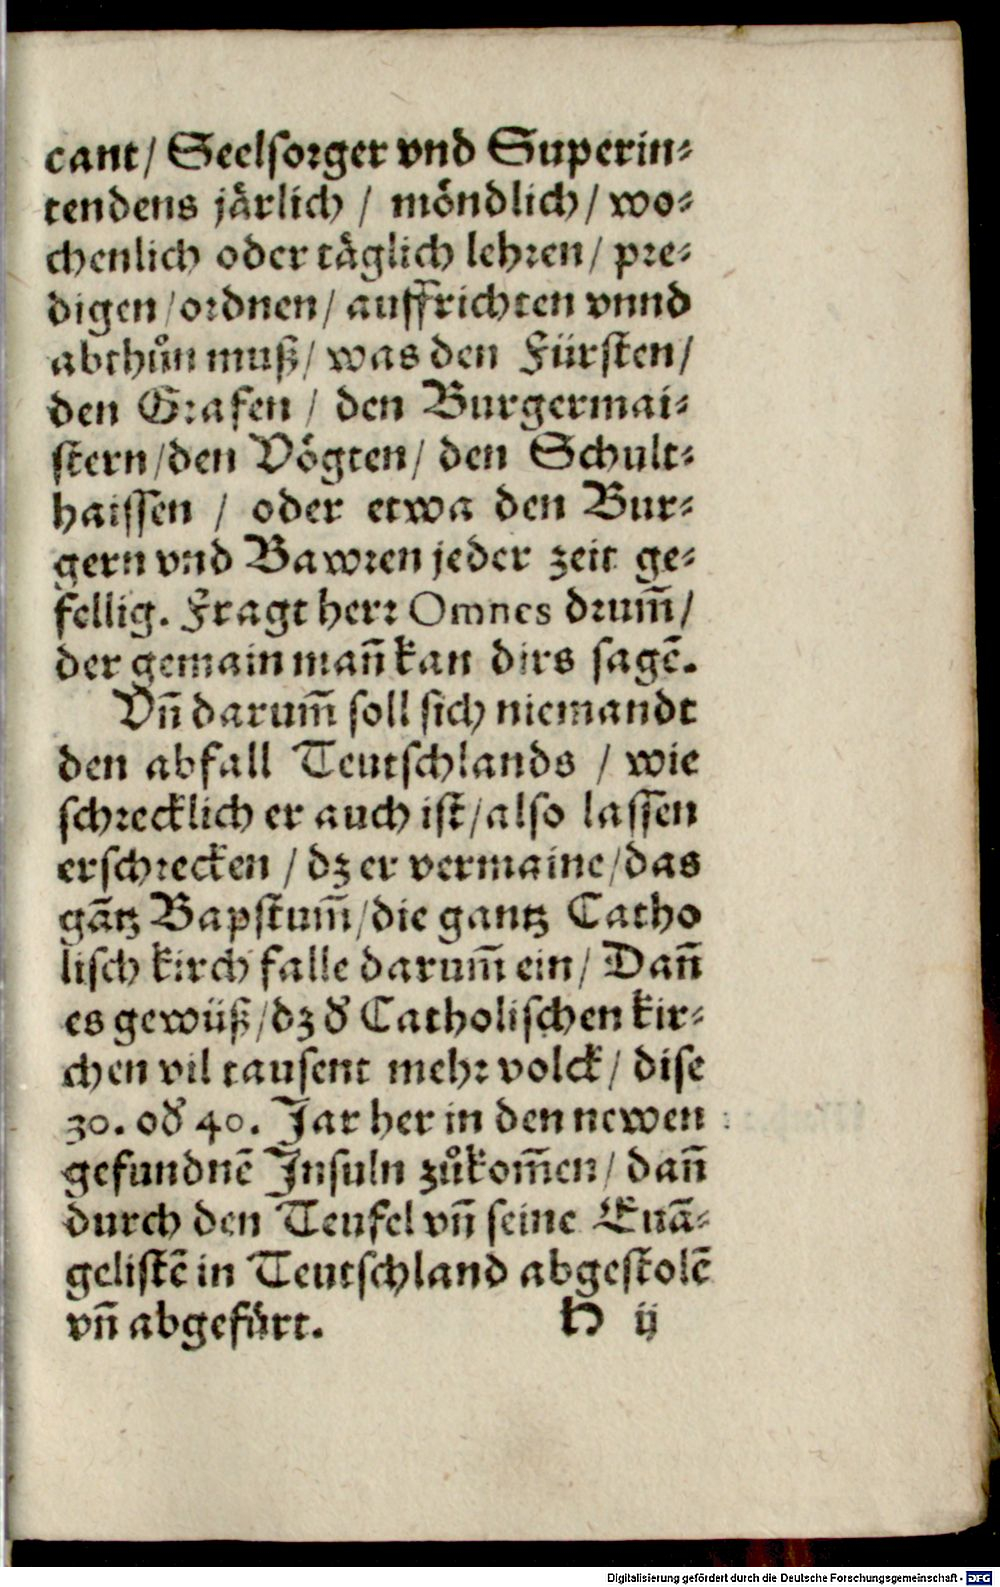 cant/ Seelsorger vnd Superin⸗
tendens jaͤrlich / moͤndlich/ wo⸗
chenlich oder taͤglich lehren/ pre⸗
digen/ordnen/ auffrichten vnnd
abthuͦn muß/ was den Fürsten/
den Grafen / den Burgermai⸗
stern/den Voͤgten/ den Schult⸗
haissen / oder etwa den Bur⸗
gern vnd Bawren jeder zeit ge⸗
fellig. Fragt herr Omnes drum̃/
der gemain mañ kan dirs sagẽ.
Vñ darum̃ soll sich niemandt
den abfall Teutschlands / wie
schrecklich er auch ist/also lassen
erschrecken / dz er vermaine/das
gãtz Bapstum̃/die gantz Catho
lisch kirch falle darum̃ ein/ Dañ
es gewüß/dz d̕ Catholischen kir⸗
chen vil tausent mehr volck/ dise
30. od̕ 40. Jar her in den newen
gefundnẽ Insuln zuͦkom̃en/ dañ
durch den Teufel vñ seine Euã⸗
gelistẽ in Teutschland abgestolẽ
vñ abgefuͤrt. H ij
Digitalisierung gefördert durch die Deutsche Forschungsgemeinschaft - DFG